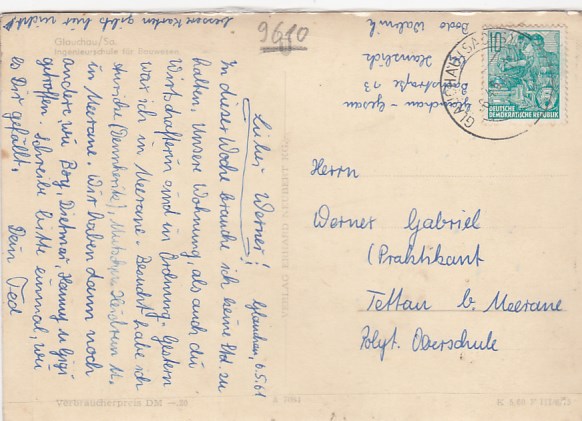 bessere Karten gibts hier nicht!
9610
Glauchau/Sa.
Ingenieurschule für Bauwesen
Glauchau, 6.5.61
Lieber Werner!
In dieser Woche brauche ich keine Std. zu
halten. Unsere Wohnung, als auch die
Wirtschafterin sind in Ordnung. Gestern
war ich in Meerane. Besucht habe ich
(Dennheritz),
in Meerane. Wir haben dann noch
andere wie Böy, Dietmar, Hanny u. Gigi
getroffen. Schreibe bitte einmal, wie
es Dir gefällt.
Dein Ted
Bodo
Glauchau - Gesau
13
10
DEUTSCHE
DEMOKRATISCHE REPUBLIK
GLAUCHAU (SACHS)
Herrn
Werner Gabriel
(Praktikant
Tettau b. Meerane
Polyt. Oberschule
Verbraucherpreis DM -.20